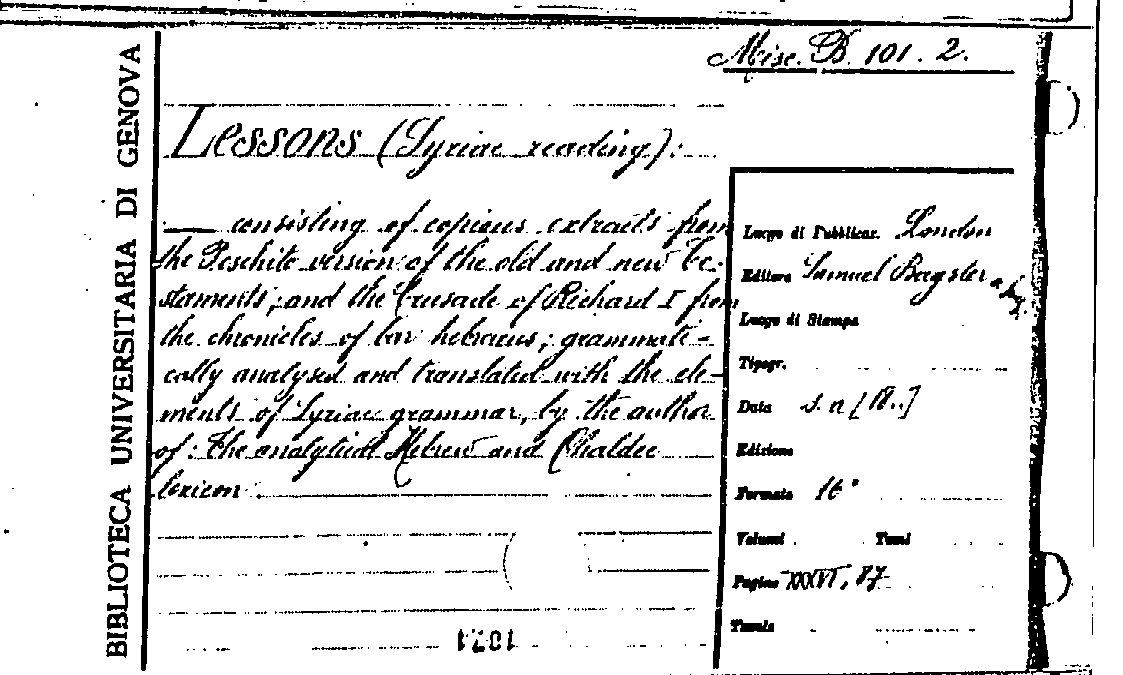 Misc. B. 101. 2.
BIBLIOTECA UNIVERSITARIA DI GENOVA
Lessons (Syriac reading):
— consisting of copious extracts from
the Peschito version of the old and new Te-
staments; and the Crusade of Richard I from
the chronicles of bar hebraeus; grammati-
cally analysed and translated with the ele-
ments of Syriac grammar, by the author
of: The analytical Hebrew and Chaldee
lexicon
Luogo di Pubblicaz. London
Editore Samuel Bagster
Luogo di Stampa
Tipogr.
Data s. a [18..]
Edizione
Formato 16°
Volumi Tomi
Pagine XXXVI, 87
Tavole